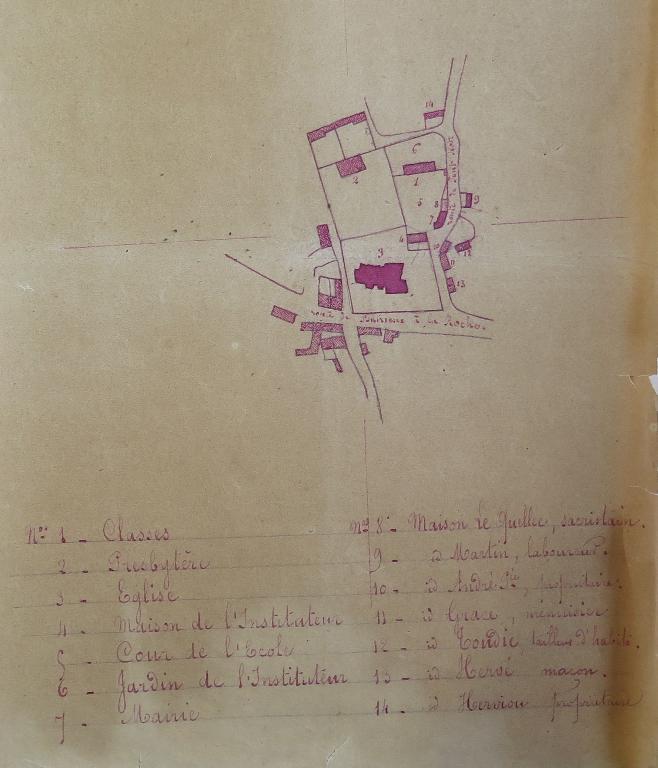 14
6
2
1
5
8
9
7
4
10
3
12
11
13
route de
à la Roche.
Nos 1 - Classes
2 - Presbytère
3 - Eglise
4 - Maison de l'Instituteur
5 - Cour de l'Ecole
6 - Jardin de l'Instituteur
7 - Mairie
Nos 8 - Maison Le Quellec, sacristain.
9 - id Martin, laboureur.
10 - id André Pre, propriétaire.
11 - id Grace, menuisier
12 - id Toudic, tailleur d'habits.
13 - id Hervé maçon.
14 - id Herviou propriétaire